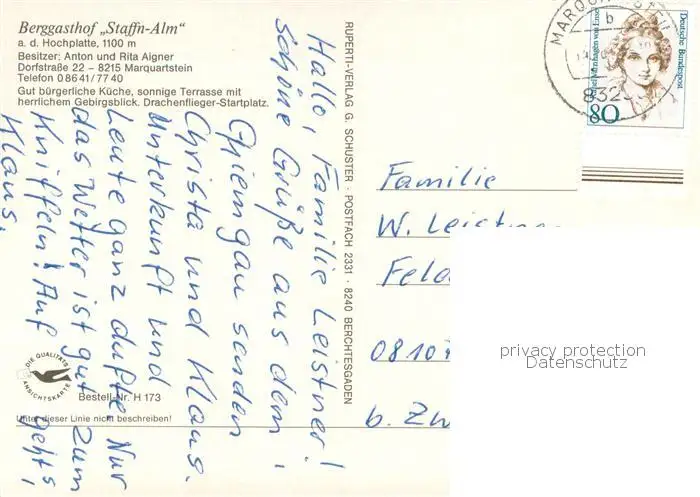 Berggasthof „Staffn-Alm"
a. d. Hochplatte, 1100 m
Besitzer: Anton und Rita Aigner
Dorfstraße 22 – 8215 Marquartstein
Telefon 0 86 41 / 77 40
Gut bürgerliche Küche, sonnige Terrasse mit
herrlichem Gebirgsblick. Drachenflieger-Startplatz.
Hallo, Familie Leistner!
schöne Grüße aus dem
Chiemgau senden
Christa und Klaus.
Unterkunft und
Leute ganz dufte. Nur
das Wetter ist gut zum
Kniffeln! Auf gehts,
Klaus.
DIE QUALITÄTS
ANSICHTSKARTE
Bestell-Nr. H 173
Unter dieser Linie nicht beschreiben!
RUPERTI-VERLAG G. SCHUSTER · POSTFACH 2331 · 8240 BERCHTESGADEN
b
832
Deutsche Bundespost
80
Familie
W. Leistner
b. Zw
privacy protection
Datenschutz